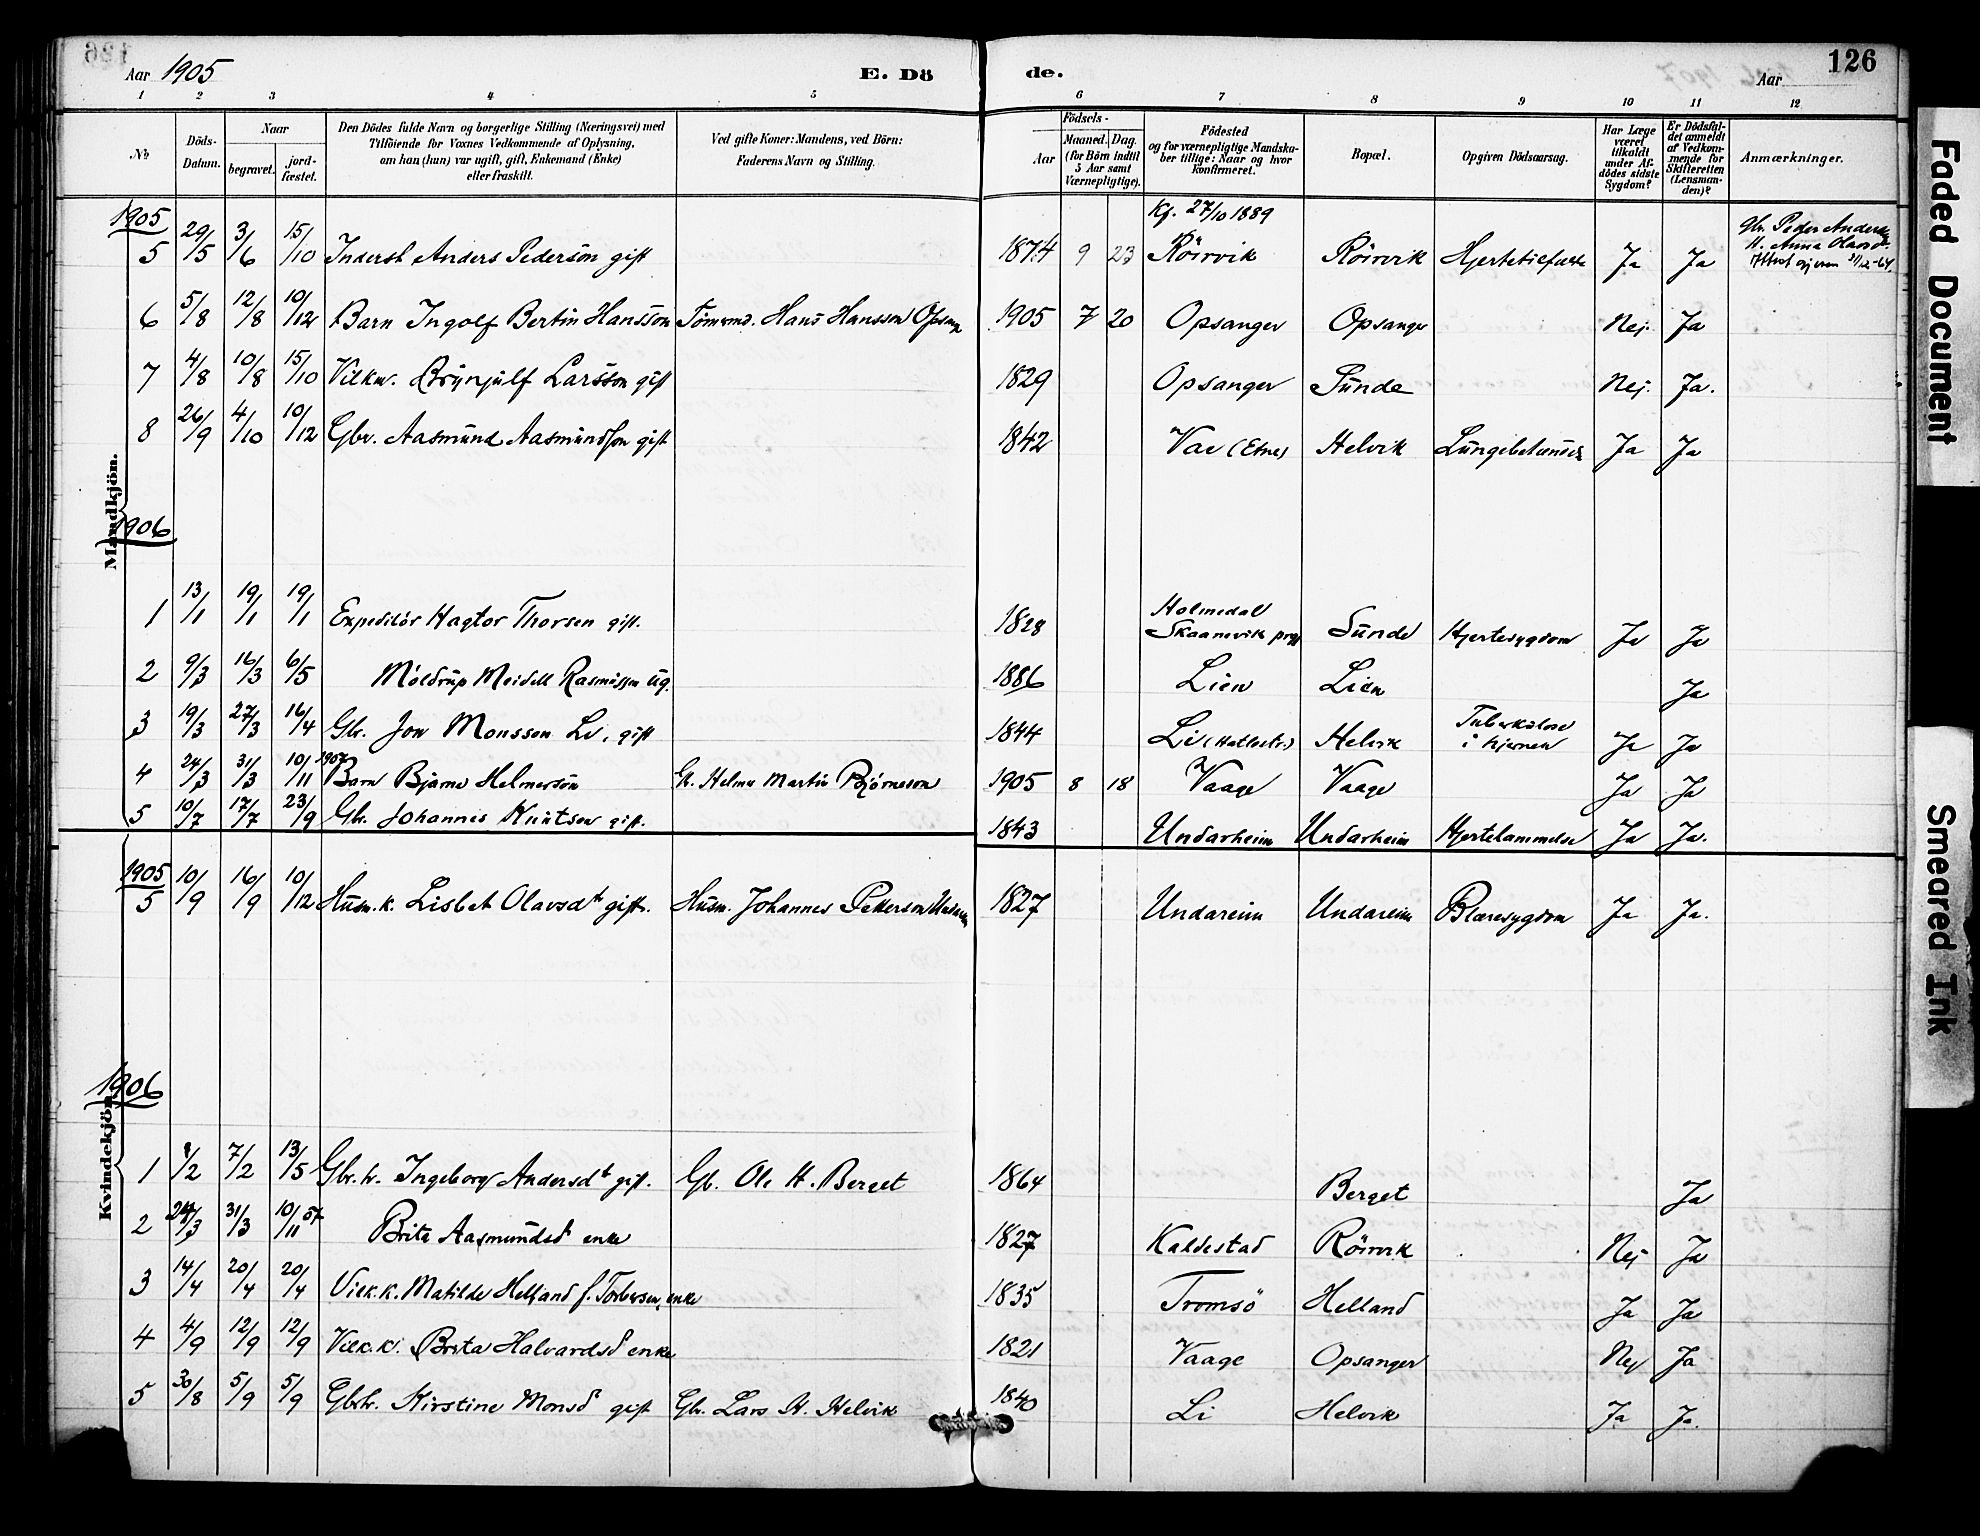 126
Aar 1905
E. Dö
de.
Aar
126
1 2 3 4 5 6 7 8 9 10 11 12
No
Döds-
Datum.
Naar
begravet.
jord-
fæstet.
Den Dödes fulde Navn og borgerlige Stilling (Næringsvei) med
Tilföiende for Voxnes Vedkommende af Oplysning,
om han (hun) var ugift, gift, Enkemand (Enke)
eller fraskilt.
Ved gifte Koner: Mandens, ved Börn:
Faderens Navn og Stilling.
Födsels-
Aar
Maaned. Dag.
(for Börn indtil
5 Aar samt
Værnepligtige).
Födested
og for værnepligtige Mandska-
ber tillige: Naar og hvor
konfirmeret.
Bopæl.
Opgiven Dödsaarsag.
Har Læge
været
tilkaldt
under Af-
dödes sidste
Sygdom?
Er Dödsfal-
det anmeldt
af Vedkom-
mende for
Skifteretten
(Lensman-
den)?
Anmærkninger.
Mandkjön.
1905
Kf. 27/10 1889
5 29/5 3/6 15/10 Anders Pederson gift 1874 9 23 Röirvik Röirvik Ja Ja
Gbr. Peder Anders
H. Anna Olavsd.
6 5/8 12/8 10/12 Barn Ingolf Bertin Hansson Tömrmd. Hans Hansson 1905 7 20 Opsanger Opsanger Nej. Ja
7 4/8 10/8 15/10 Vilkm. Brynjulf Larsson gift 1829 Opsanger Sunde Nej. Ja.
8 26/9 4/10 10/12 Gbr. Aasmund Aasmundson gift 1842 Vae (Etne) Helvik Ja Ja
1906
1 13/1 19/1 19/1 Expeditör Hagtor Thorsen gift. 1828 Holmedal
Skaanevik prgj Sunde Hjertesygdom Ja Ja
2 9/3 16/3 6/5 Möldrup Meidell Rasmussen ug. 1886 Lien Lien Ja
3 19/3 27/3 16/4 Gbr. Jon Monsson Li, gift 1844 Li Helvik Tuberkulose
i hjernen Ja Ja
4 24/3 31/3 10/11 1907 Barn Bjarne Helmerson Gb. Helmer Martin Björneson 1905 8 18 Vaage Vaage Ja Ja
5 10/7 17/7 23/9 Gbr. Johannis Knutsen gift. 1843 Undarheim Undarheim Hjertelammelse Ja Ja.
Kvindekjön.
1905
5 10/9 16/9 10/12 Husm.k. Lisbet Olavsdt gift. Husm. Johannes Pederson 1827 Undareim Undareim Blæresygdom Ja Ja.
1906
1 /2 7/2 13/5 Gbr.k. Ingeborg Andersdt gift. Gb. Ole H. Berget 1864 Berget Ja
2 24/3 31/3 10/11 07 Brita Aasmundsd enke 1827 Kaldestad Röirvik Nej Ja
3 14/4 20/4 20/4 Vilk.k. Matilde Helland f. Torbersen, enke 1835 Tromsö Helland Ja Ja
4 4/9 12/9 12/9 Vilk.k. Brita Halvardsd enke 1821 Vaage Opsanger Nej Ja
5 30/8 5/9 5/9 Gbrk. Kirstine Monsd gift Gbr. Lars H. Helvik 1840 Li Helvik Ja Ja.
Faded Document
Smeared Ink